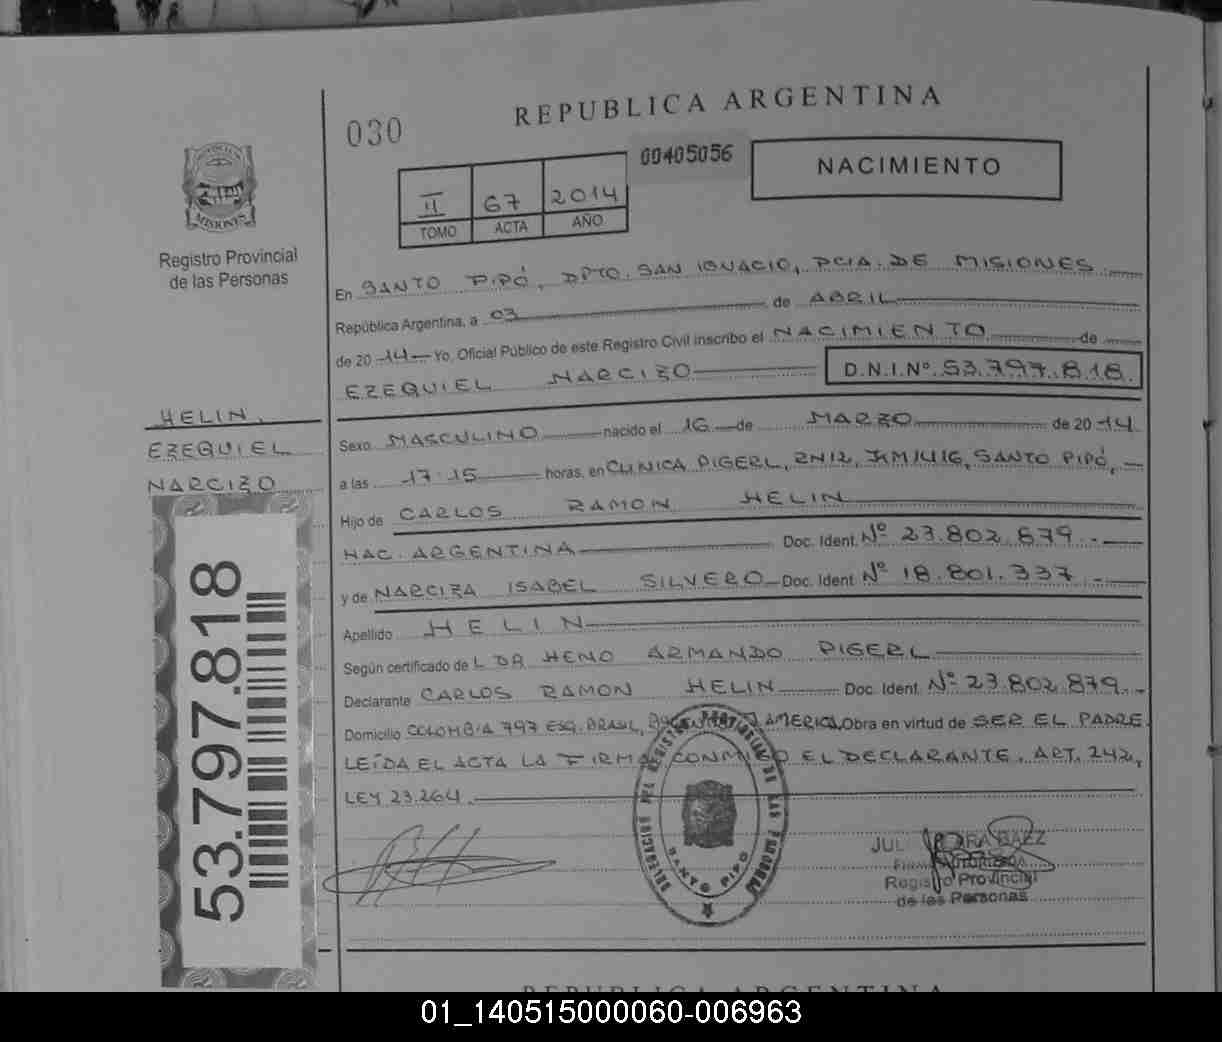 REPUBLICA ARGENTINA
030
00405056
NACIMIENTO
II 67 2014
TOMO ACTA AÑO
PROVINCIA DE
MISIONES
Registro Provincial
de las Personas
En SANTO PIPÓ, DPTO. SAN IGNACIO, PCIA. DE MISIONES
República Argentina, a 03 de ABRIL
de 2014 Yo, Oficial Público de este Registro Civil inscribo el NACIMIENTO de
EZEQUIEL NARCIZO D.N.I.Nº 53.797.818
HELIN,
EZEQUIEL
NARCIZO
53.797.818
Sexo MASCULINO nacido el 16 de MARZO de 2014
a las 17:15 horas, en CLINICA PIGERL, RN12, KM1416, SANTO PIPÓ,
Hijo de CARLOS RAMON HELIN
NAC. ARGENTINA Doc. Ident. Nº 23.802.879.-
y de NARCIZA ISABEL SILVERO Doc. Ident Nº 18.801.337.-
Apellido HELIN
Según certificado de L DR HENO ARMANDO PIGERL
Declarante CARLOS RAMON HELIN Doc. Ident. Nº 23.802.879.-
Domicilio COLOMBIA 797 ESQ. BRASIL, J. AMERICA Obra en virtud de SER EL PADRE.
LEÍDA EL ACTA LA FIRMA CONMIGO EL DECLARANTE. ART. 242,
LEY 23.264.
DELEGACION DEL REGISTRO PROVINCIAL DE LAS PERSONAS
SANTO PIPO
BAEZ
Registro Provincial
de las Personas
REPUBLICA ARGENTINA
01_140515000060-006963